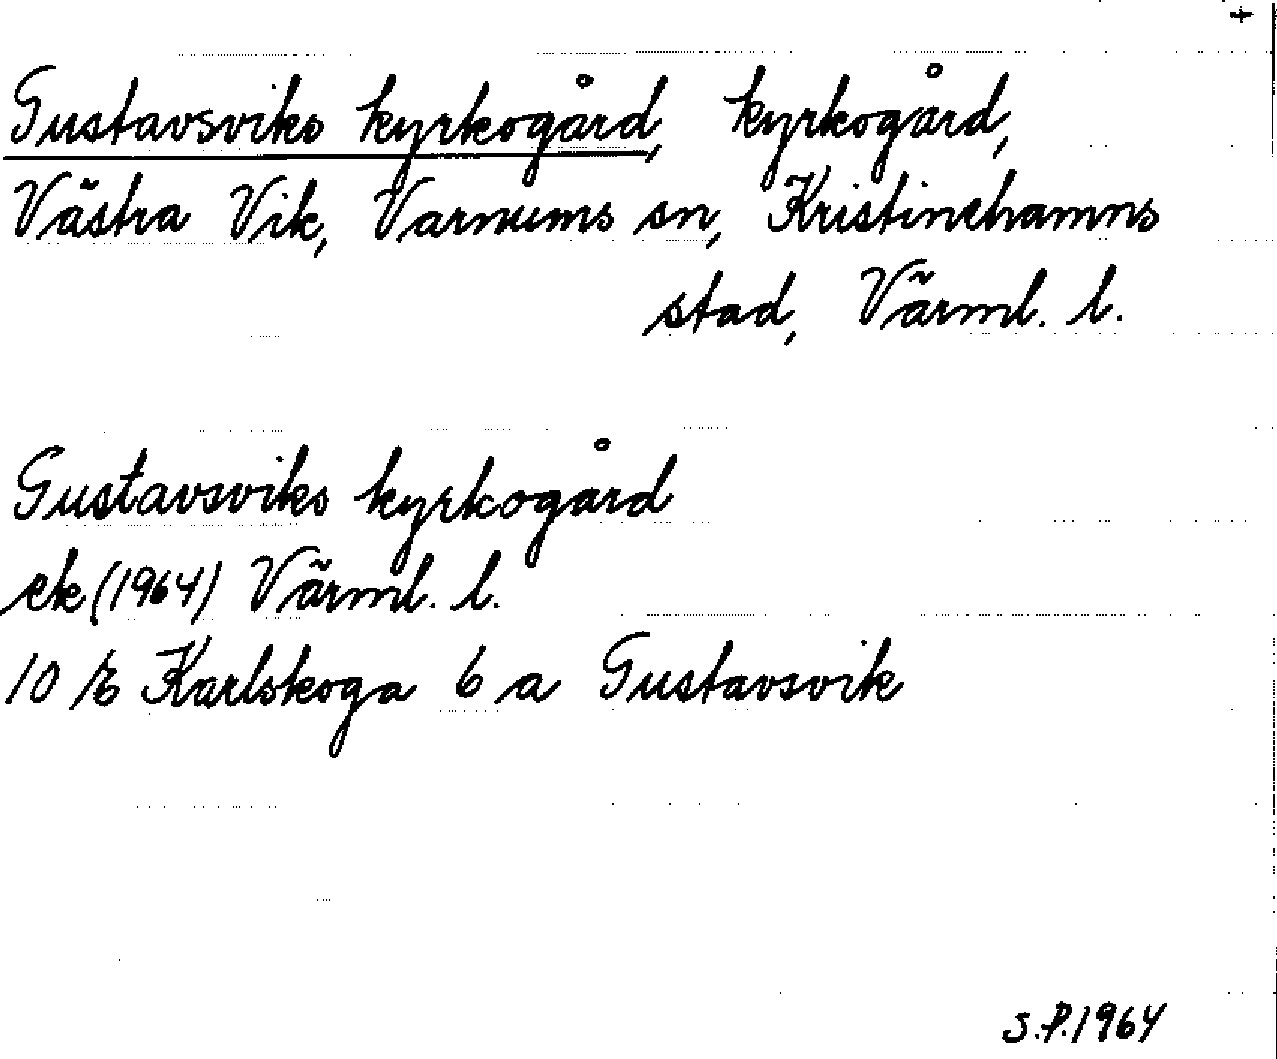 Gustavsviks kyrkogård, kyrkogård,
Västra Vik, Varnums sn, Kristinehamns
stad, Värml. l.
Gustavsviks kyrkogård
ek (1964) Värml. l.
10 E Karlskoga 6 a Gustavsvik
S.P. 1964